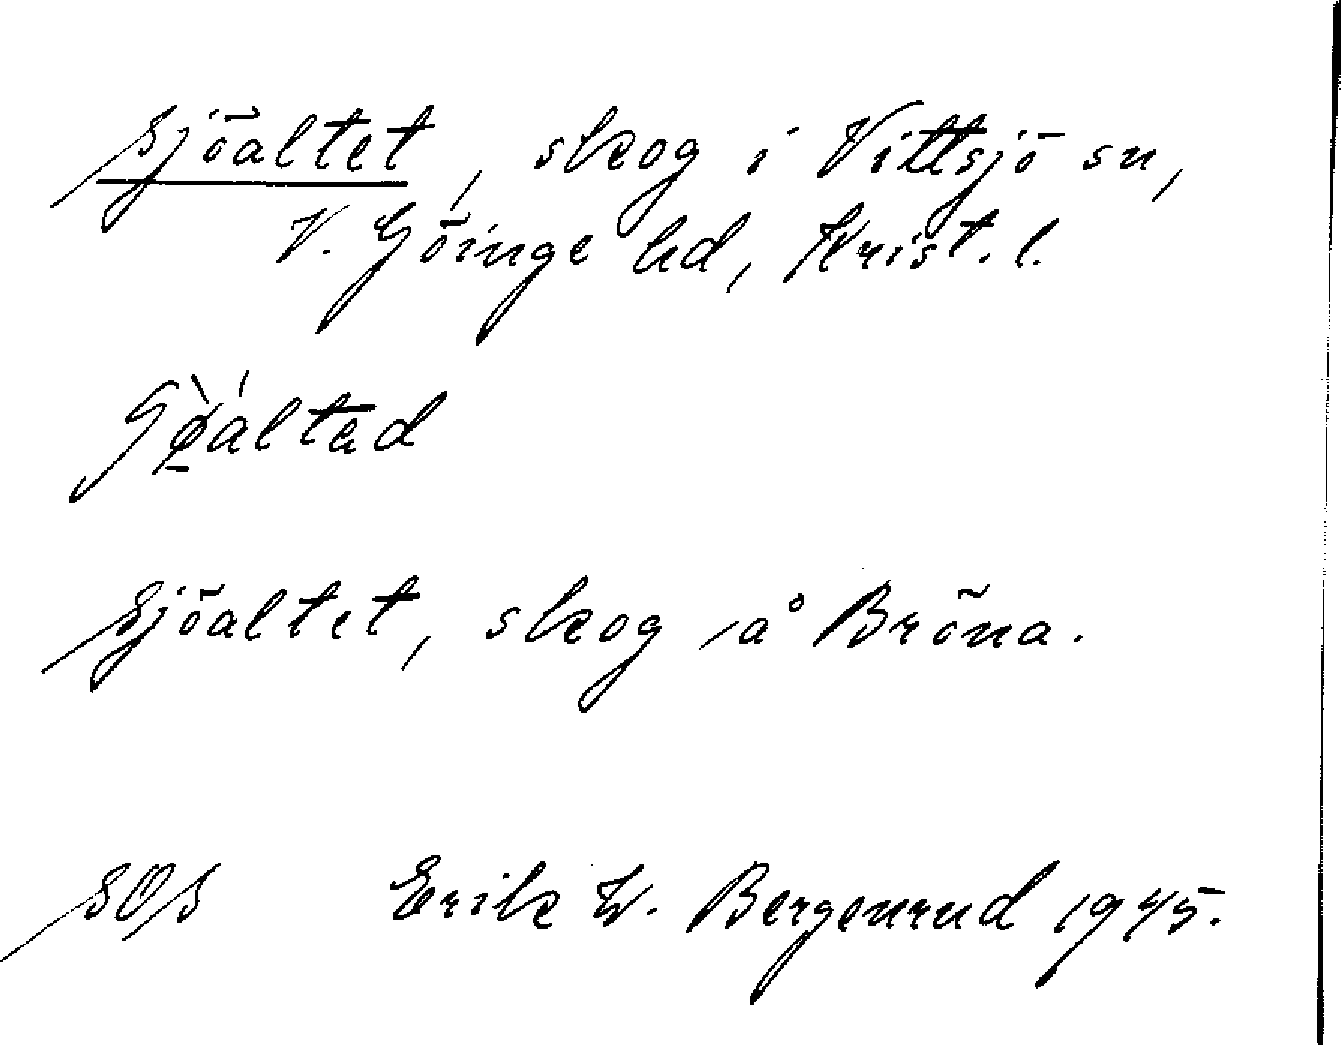 Sjöaltet, skog i Vittsjö sn,
V. Göinge hd, Krist. l.
Sjöaltet, skog å Bröna.
SOS Erik W. Bergenrud 1945.